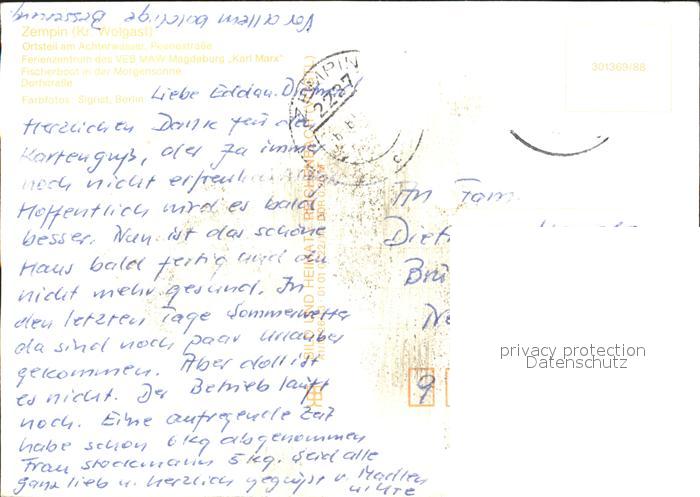 Vor allem baldige Besserung
Zempin (Kr. Wolgast)
Ortsteil am Achterwasser, Peenestraße
Ferienzentrum des VEB MAW Magdeburg „Karl Marx"
Fischerboot in der Morgensonne
Dorfstraße
Farbfotos: Sigrist, Berlin
301369/88
ZEMPIN
2227
Liebe
Herzlichen Dank für den
Kartengruß, der ja immer
noch nicht
Hoffentlich wird es bald
besser. Nun ist das schöne
Haus bald fertig und du
nicht mehr gesund. In
den letzten Tage Sommerwetter
da sind noch paar Urlauber
gekommen. Aber doll ist
es nicht. Der Betrieb läuft
noch. Eine aufregende Zeit
habe schon 6 kg abgenommen
Frau Stockmann 5 kg. Seid alle
ganz lieb u. herzlich gegrüßt v. Madlen
BILD UND HEIMAT REICHENBACH
An Fam.
Diet
Brü
Ne
9
privacy protection
Datenschutz